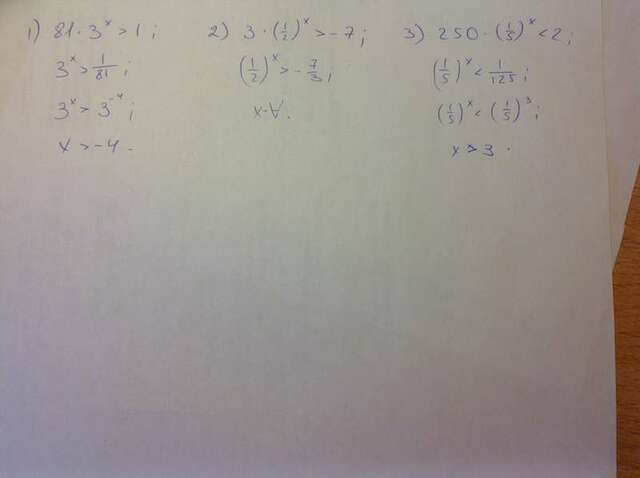 1) 81 · 3^x > 1 ;
3^x > 1/81 ;
3^x > 3^-4 ;
x > -4 .
2) 3 · (1/2)^x > -7 ;
(1/2)^x > -7/3 ;
x-∀.
3) 250 · (1/5)^x < 2 ;
(1/5)^x < 1/125 ;
(1/5)^x < (1/5)^3 ;
x > 3 .